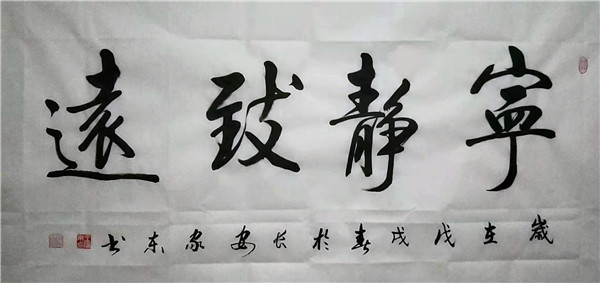 寧靜致遠
歲在戊戌春於長安家東书